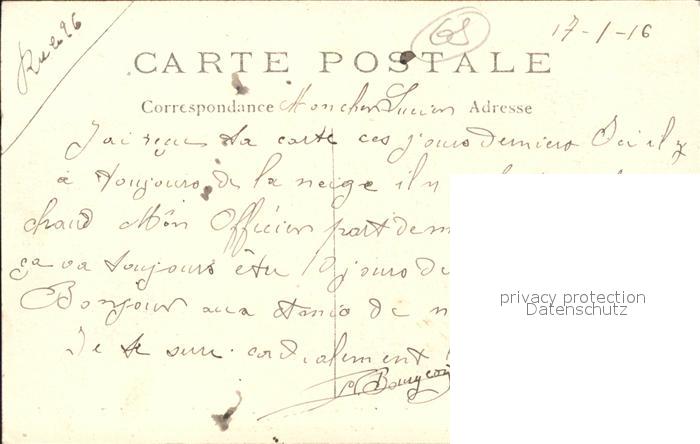 17-1-16
68
CARTE POSTALE
Correspondance Mon cher Lucien Adresse
J'ai reçu ta carte ces jours derniers Ici il y
a toujours de la neige il
chaud Mon Officier part
ça va toujours être 10 jours de
Bonjour aux Amis de
Je te serre cordialement
Bourgeois
privacy protection
Datenschutz